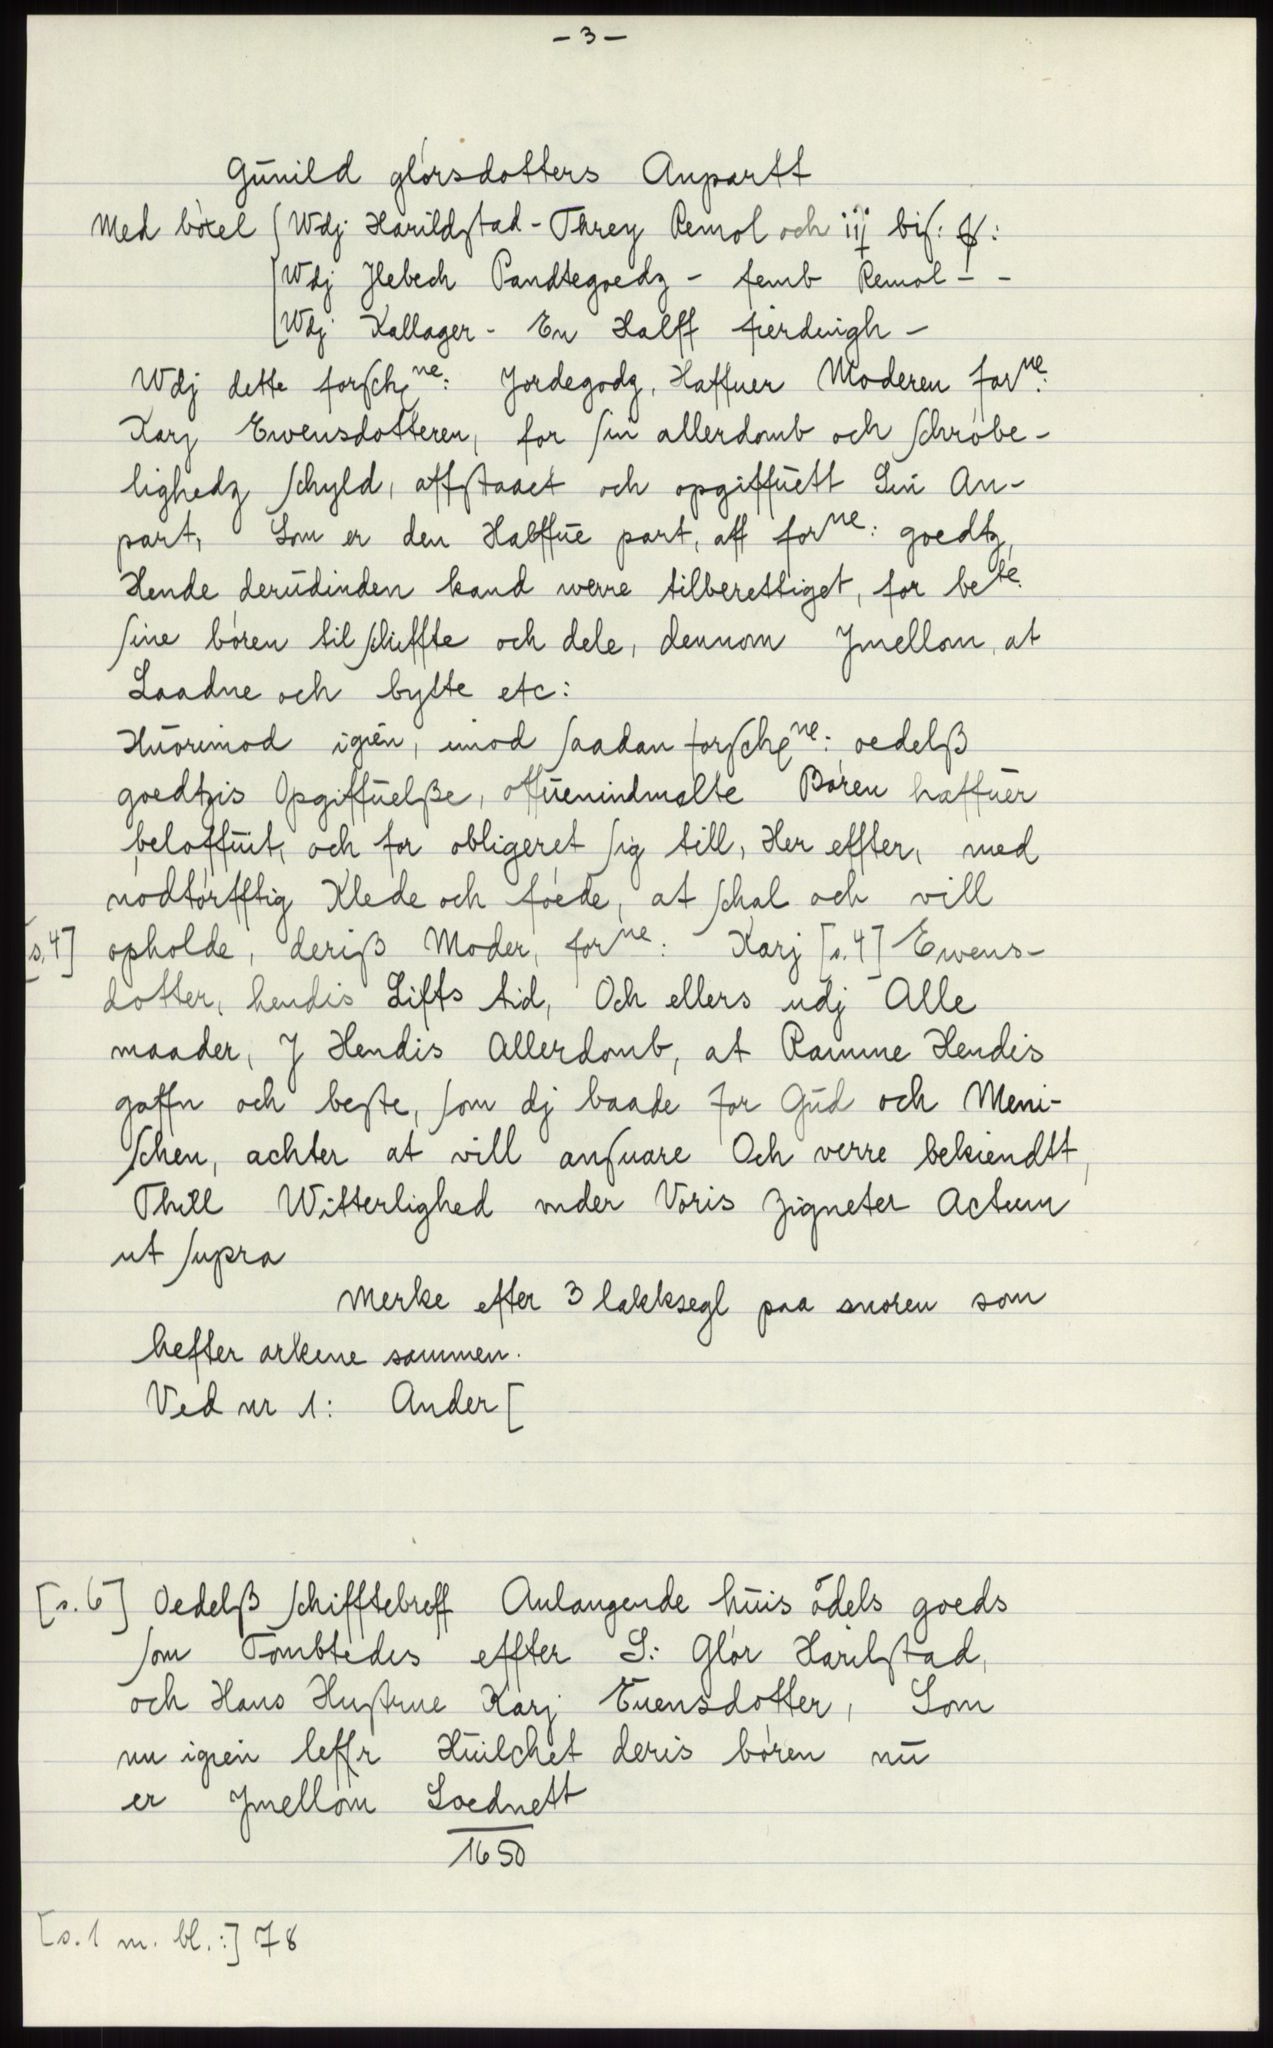 - 3 -
Gunild glorsdotters Anpartt
Med bóxel [Wdj Harildstad - Threy Remol och iij bis:
[Wdj Jlebech Pandtegoedz - femb Remol - -
[Wdj Kallager - En Halff fierdingh -
Wdj dette forschne: Jordegodz, Haffuer Moderen forne:
Karj Ewensdotteren, for sin allerdomb och schróbe-
lighedz schyld, affstaaet och opgiffuett Sin An-
part, Som er den Halffue part, aff forne: goedtz,
Hende derudinden kand werre tilberettiget, for bete.
sine bóren til schiffte och dele, dennom Jmellom, at
Laadne och bytte etc:
Huorimod igien, imod saadan forschne: oedelß
goedtzis Opgiffuelße, offuenindmelte Bóren haffuer
beloffuit, och for obligeret sig till, Her effter, med
nódtórfftig Klede och fóede, at schal och vill
[s.4] opholde, deriß Moder, forne: Karj [s.4] Ewens-
dotter, hendis Lifts tid, Och ellers udj Alle
maader, J Hendis Allerdomb, at Ramme Hendis
gaffn och beste, som dj baade for Gud och Meni-
schen, achter at vill ansuare Och verre bekiendtt,
Thill Witterlighed under Voris Zigneter Actum
ut supra
Merke efter 3 lakksegl paa snoren som
hefter arkene sammen.
Ved nr 1: Ander[
[s.6] Oedelß schifftebreff Anlangende huis ódels goeds
som Tombtedis effter S: Glór Harilstad,
och Hans Hustrue Karj Euensdotter, Som
nu igien leffr Huilchet deris bóren nu
er Jmellom Loednett
1650
[s.1 m. bl.:] 78